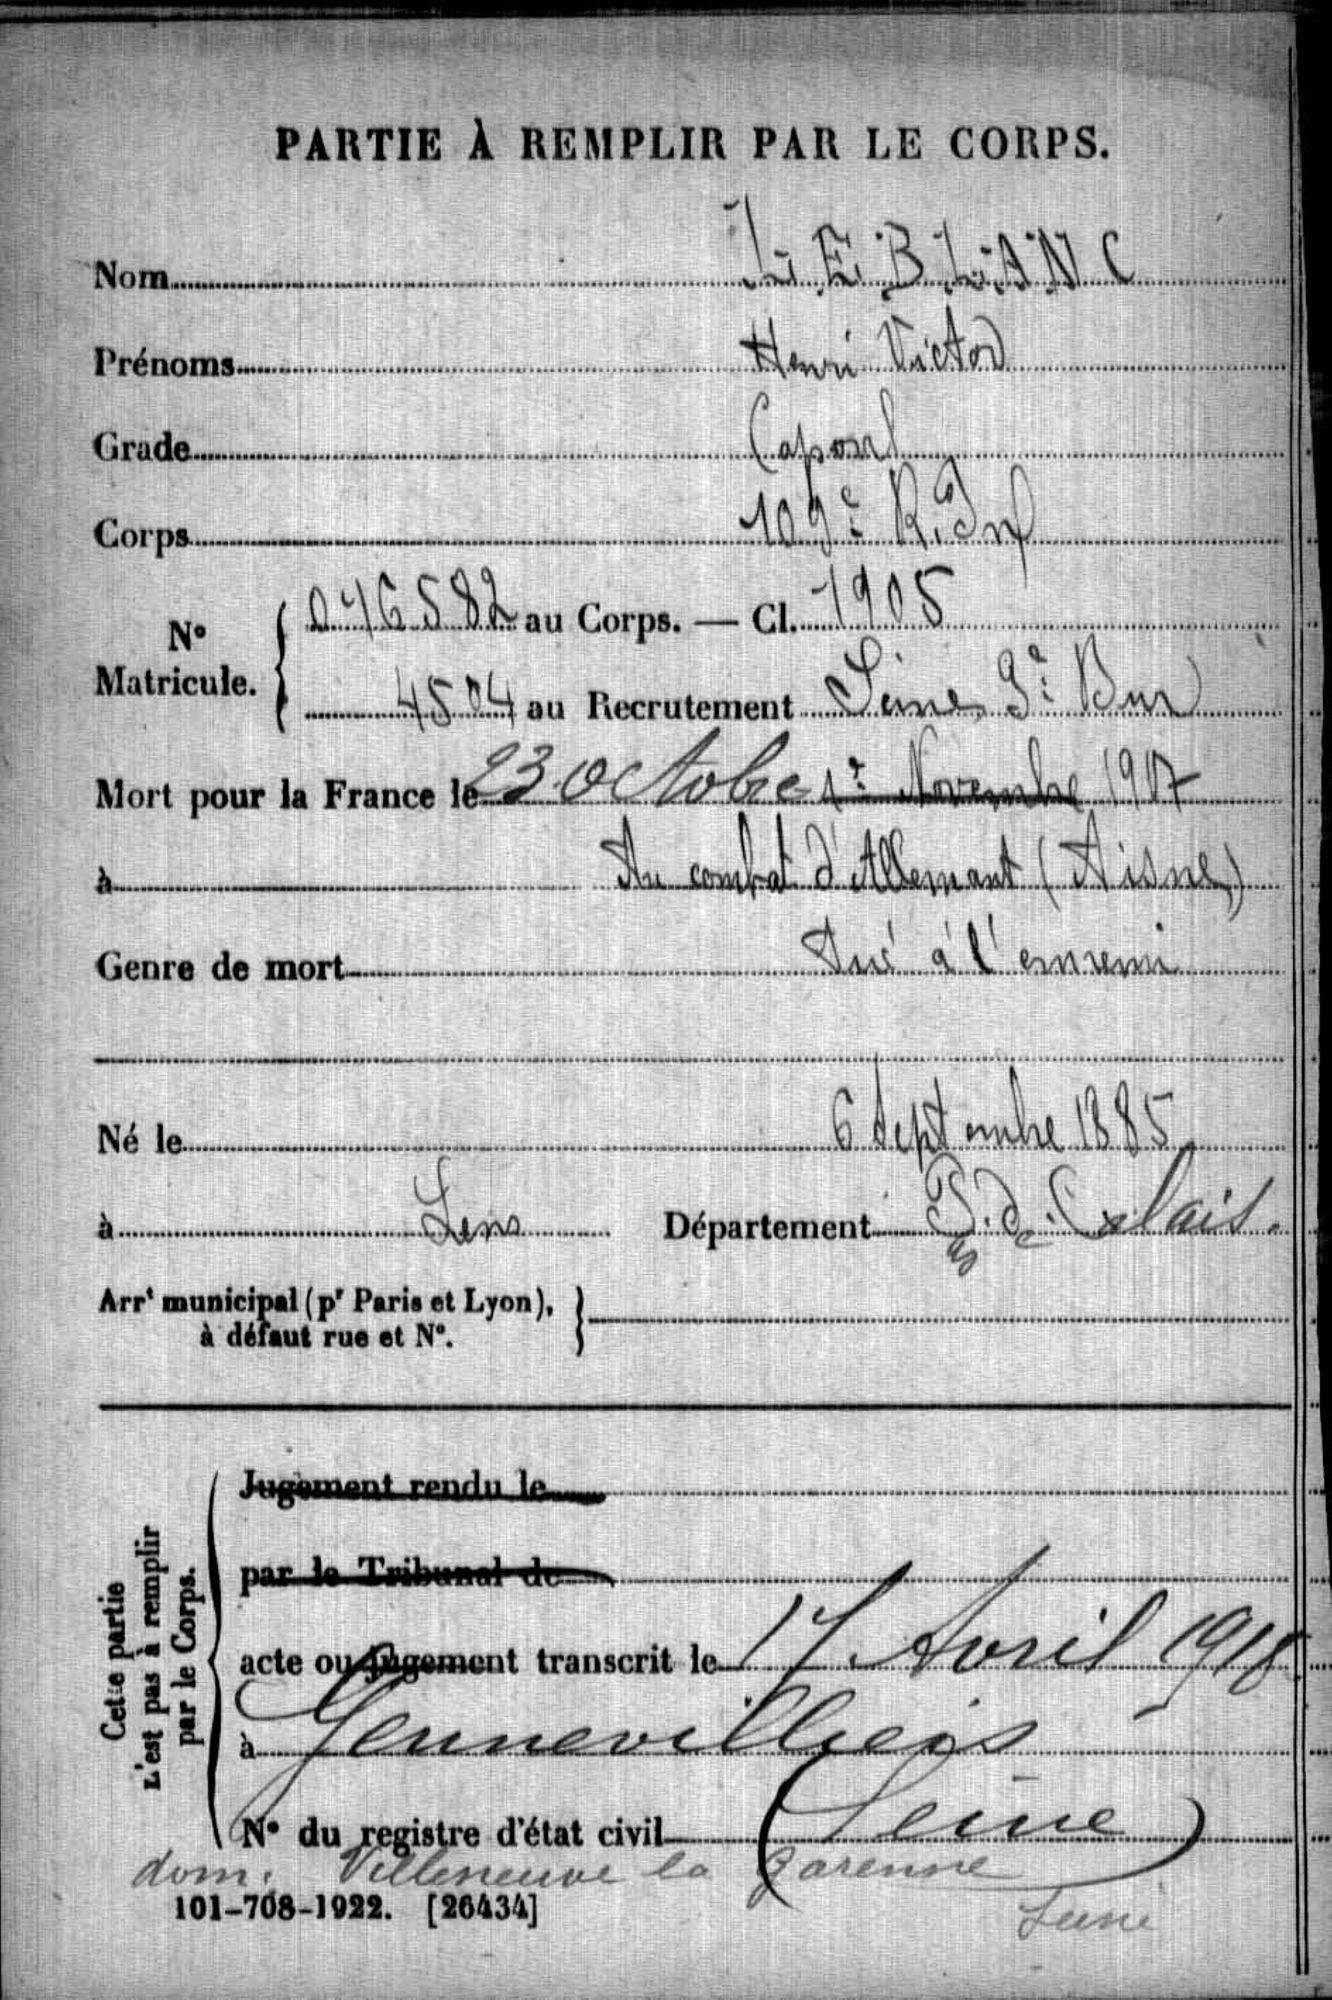 PARTIE À REMPLIR PAR LE CORPS.
Nom LEBLANC
Prénoms Henri Victor
Grade Caporal
Corps 109e R. Inf
N° Matricule. 016582 au Corps. — Cl. 1905
4504 au Recrutement Seine 3e Bur
Mort pour la France le 23 octobre 1er Novembre 1917
à Au combat d'Allemant (Aisne)
Genre de mort Tué à l'ennemi
Né le 6 Septembre 1885
à Lens Département P. de Calais.
as
Arrt municipal (pr Paris et Lyon),
à défaut rue et N°.
Cette partie
n'est pas à remplir
par le Corps.
Jugement rendu le
par le Tribunal de
acte ou jugement transcrit le 17 Avril 1918
à Gennevilliers
N° du registre d'état civil (Seine)
dom. Villeneuve la Garenne
Seine
101-708-1922. [26434]